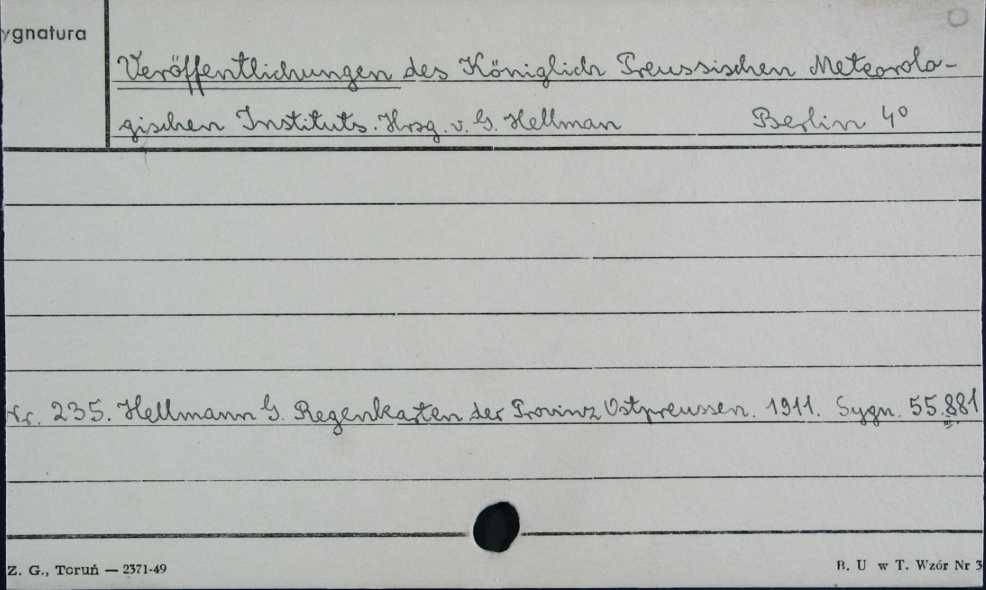 ygnatura
Veröffentlichungen des Königlich Preussischen Meteorolo-
gischen Instituts. Hrsg. v. G. Hellman Berlin 4º
Nr. 235. Hellmann G. Regenkarten der Provinz Ostpreussen. 1911. Sygn. 55.881
Z. G., Toruń — 2371-49
B. U w T. Wzór Nr 3